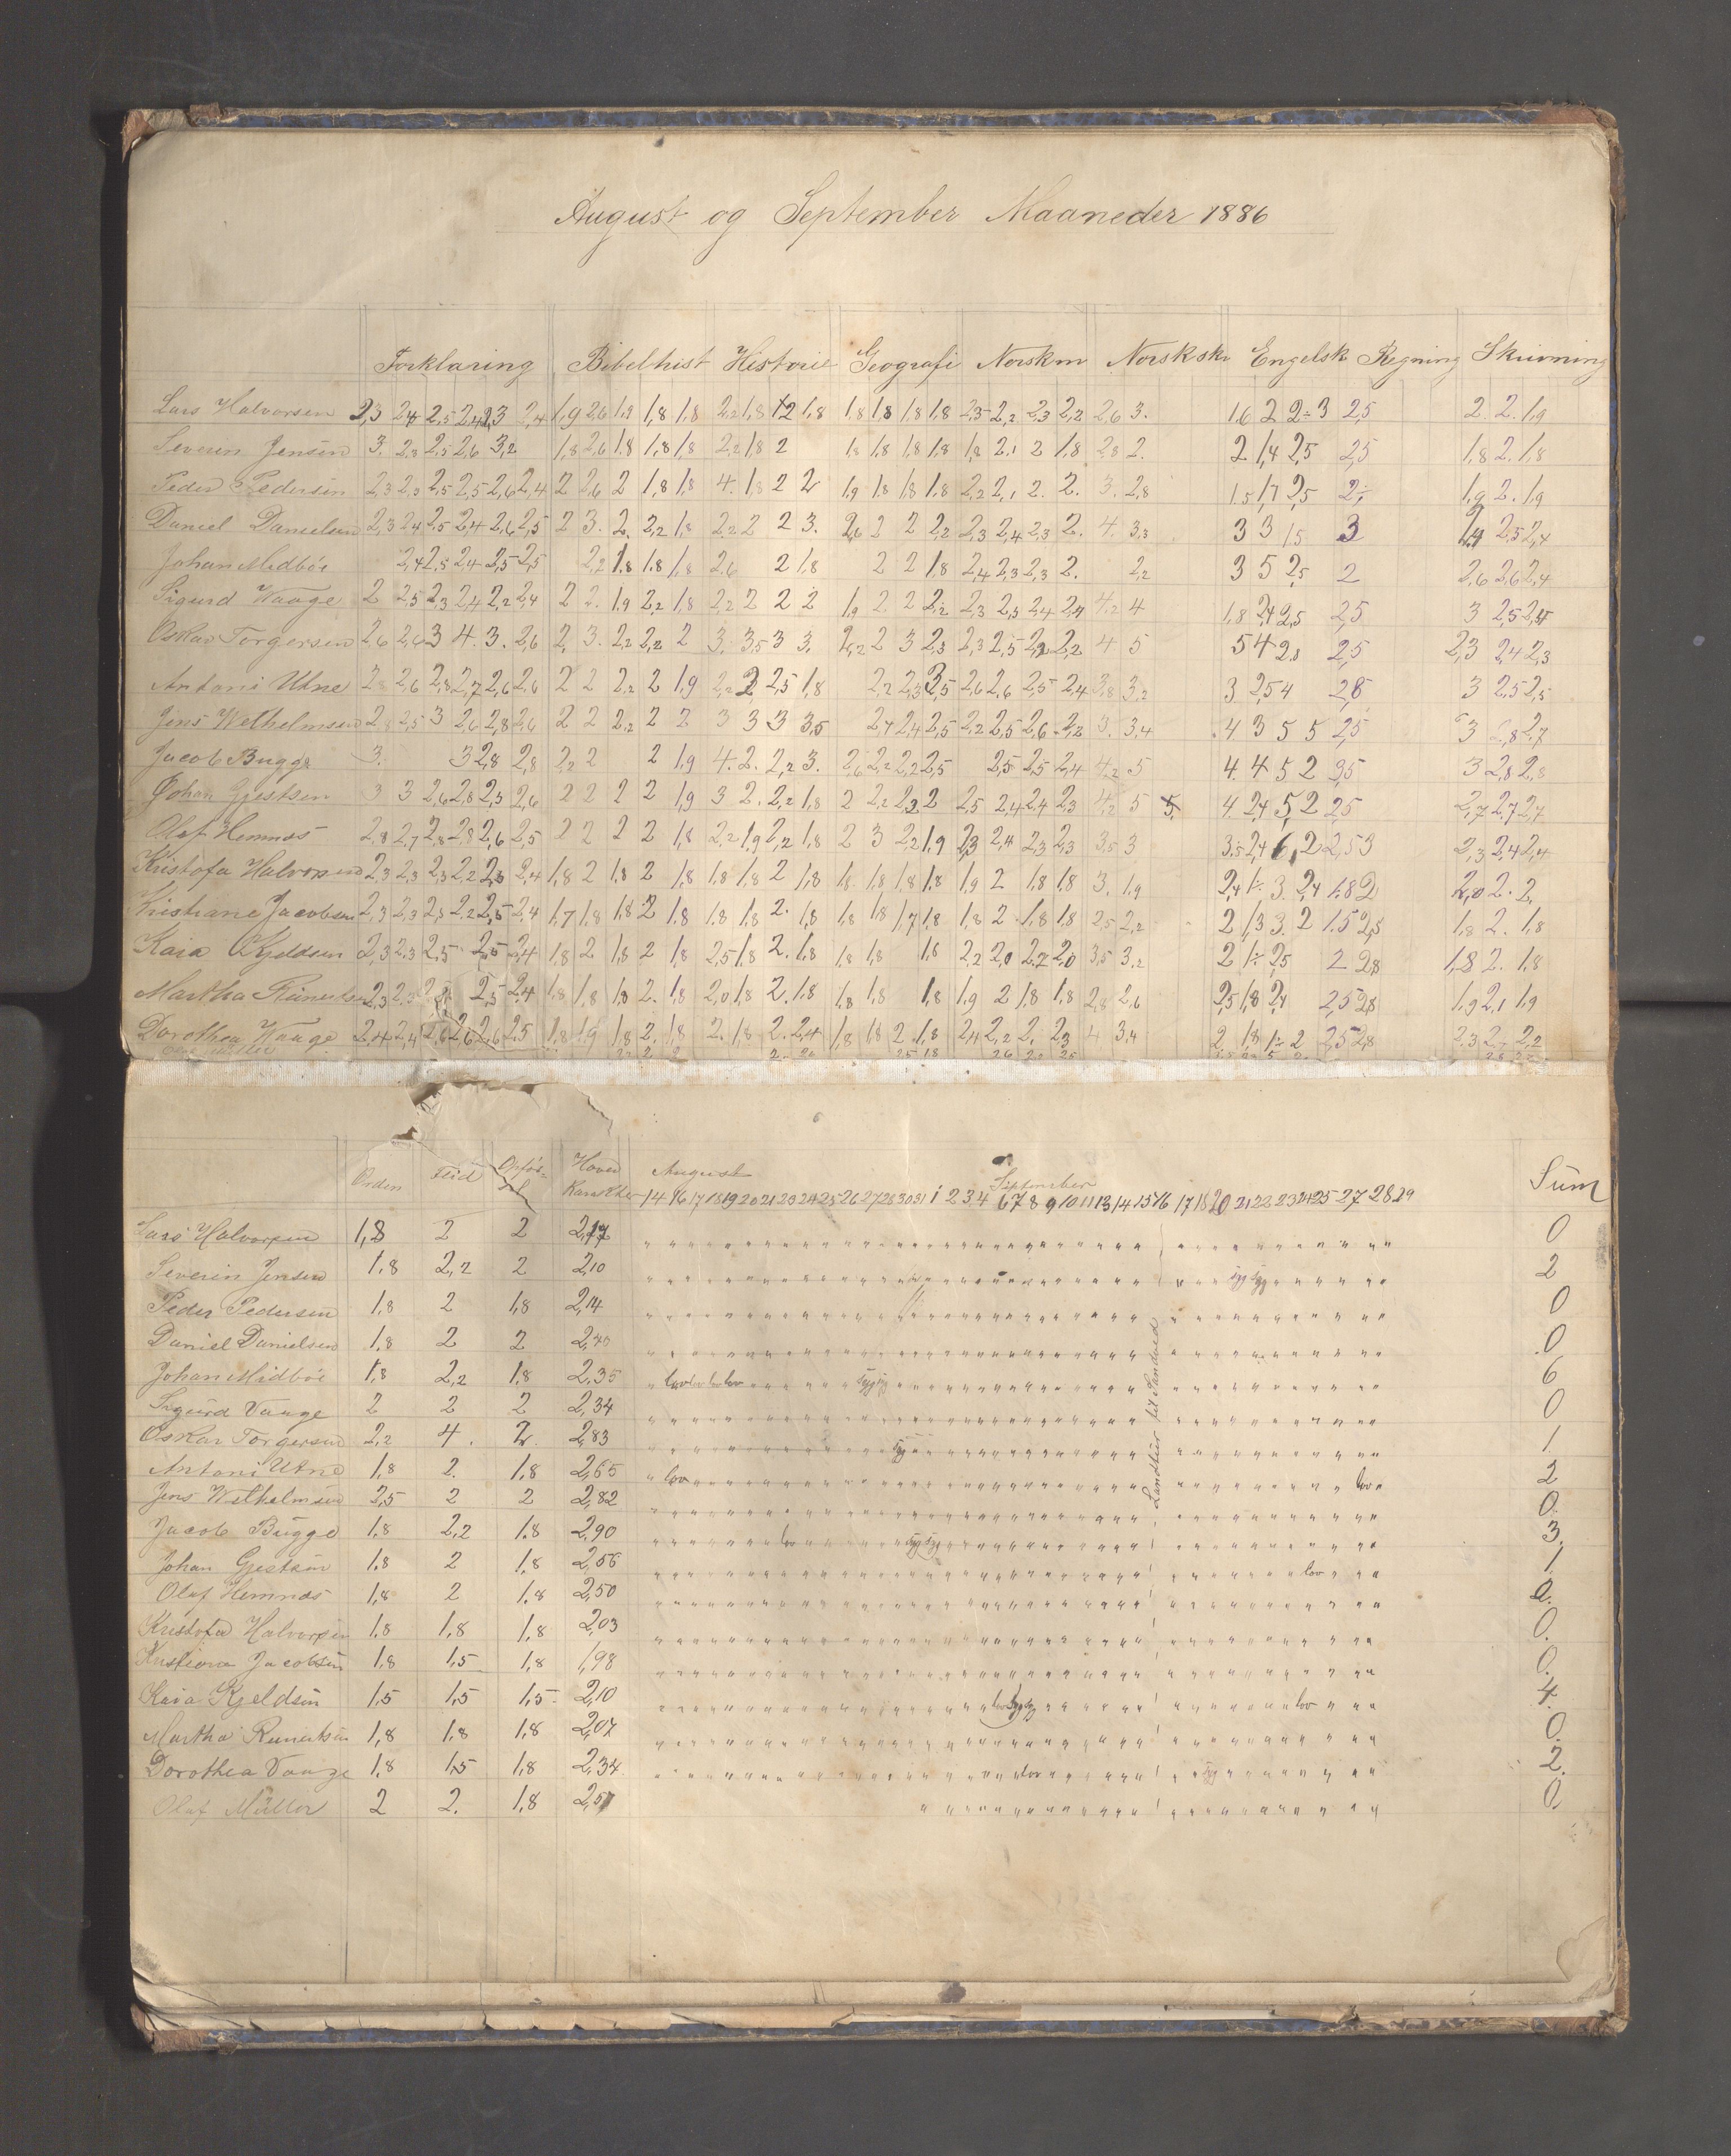 August og September Maaneder 1886
Forklaring Bibelhist Historie Geografi Norskm Norskskr Engelsk Regning Skrivning
Lars Halvorsen 2,3 2,4 2,5 2,4 2,3 2,4 1,9 2,6 1,9 1,8 1,8 2,2 1,8 1,2 1,8 1,8 1,8 1,8 1,8 2,5 2,2 2,3 2,2 2,6 3. 1,6 2 2÷ 3 2,5 2. 2. 1,9
Severin Jensen 3. 2,3 2,5 2,6 3,2 1,8 2,6 1,8 1,8 1,8 2,2 1,8 2 1,8 1,8 1,8 1,8 1,8 2,1 2 1,8 2,8 2. 2 1,4 2,5 2,5 1,8 2. 1,8
Peder Pedersen 2,3 2,3 2,5 2,5 2,6 2,4 2 2,6 2 1,8 1,8 4. 1,8 2 2 1,9 1,8 1,8 1,8 2,2 2,1 2. 2. 3. 2,8 1,5 1,7 2,5 2÷ 1,9 2. 1,9
Daniel Danielsen 2,3 2,4 2,5 2,4 2,6 2,5 2 3. 2. 2,2 1,8 2,2 2 2 3. 2,6 2 2 2,2 2,3 2,4 2,3 2. 4. 3,3 3 3 1,5 3 1,4 2,5 2,4
Johan Midböe 2,4 2,5 2,4 2,5 2,5 2,2 1,8 1,8 1,8 2,6 2 1,8 2 2 1,8 2,4 2,3 2,3 2. 2,2 3 5 2,5 2 2,6 2,6 2,4
Sigurd Waage 2 2,5 2,3 2,4 2,2 2,4 2 2. 1,9 2,2 1,8 2,2 2 2 2 1,9 2 2 2,2 2,3 2,3 2,4 2,4 4,2 4 1,8 2,4 2,5 2,5 3 2,5 2,4
Oskar Torgersen 2,6 2,6 3 4. 3. 2,6 2. 3. 2,2 2,2 2 3. 3,5 3 3. 2,2 2 3 2,3 2,3 2,5 2,2 2,2 4 5 5 4 2,8 2,5 2,3 2,4 2,3
Antoni Utne 2,8 2,6 2,8 2,7 2,6 2,6 2 2 2,2 2 1,9 2,2 2 2,5 1,8 2,2 2,3 3,5 2,6 2,6 2,5 2,4 3,8 3,2 3 2,5 4 2,8 3 2,5 2,5
Jens Wethelmsen 2,8 2,5 3 2,6 2,8 2,6 2 2 2,2 2 2 3 3 3 3,5 2,4 2,4 2,5 2,2 2,5 2,6 2,2 3. 3,4 4 3 5 5 2,5 3 2,8 2,7
Jacob Bugge 3. 3 2,8 2,8 2,2 2 2 1,9 4. 2. 2,2 3. 2,6 2,2 2,2 2,5 2,5 2,5 2,4 4,2 5 4. 4 5 2 3,5 3 2,8 2,8
Johan Gjestsen 3 3 2,6 2,8 2,3 2,6 2 2 2 2 1,9 3 2. 2,2 1,8 2 2,2 2,3 2 2,5 2,4 2,4 2,3 4,2 5 5. 4 2,4 5, 2 2,5 2,7 2,7 2,7
Olaf Hemnæs 2,8 2,7 2,8 2,8 2,6 2,5 2 2 2 2 1,8 2,2 1,9 2,2 1,8 2 3 2,2 1,9 2,3 2,4 2,3 2,3 3,5 3 3,5 2,4 6, 2 2,5 3 2,3 2,4 2,4
Kristofa Halvorsen 2,3 2,3 2,3 2,2 2,3 2,4 1,8 2 1,8 2 1,8 1,8 1,8 2 1,8 1,8 1,8 1,8 1,8 1,9 2 1,8 1,8 3. 1,9 2,4 1÷ 3 2,4 1,8 2 2,0 2. 2.
Kristiane Jacobsen 2,3 2,3 2,3 2,2 2,5 2,4 1,7 1,8 1,8 2 1,8 1,8 1,8 2. 1,8 1,8 1,8 1,7 1,8 1,8 2 1,8 1,8 2,5 2,2 2 1,3 3. 2 1,5 2,5 1,8 2. 1,8
Kaia Kjeldsen 2,3 2,3 2,5 2,5 2,4 1,8 2 1,8 2 1,8 2,5 1,8 2. 1,8 1,8 1,8 1,8 2,2 2,0 2,2 2,0 3,5 3,2 2 1÷ 2,5 2 2,8 1,8 2. 1,8
Martha Runertsen 2,3 2,3 2,5 2,4 1,8 1,8 1,8 2. 1,8 2,0 1,8 2. 1,8 1,8 1,8 1,8 1,9 2 1,8 1,8 2,8 2,6 2,5 1,8 2,4 2,5 2,8 1,9 2,1 1,9
Dorothea Waage 2,4 2,4 2,6 2,6 2,6 2,5 1,8 1,9 1,8 2. 1,8 2. 1,8 2. 2,4 1,8 1,8 2 1,8 2,4 2,2 2. 2,3 4 3,4 2. 1,8 1÷ 2 2,5 2,8 2,3 2. 2,2
Orden Flid Opförsel Hovedkarakter August September Sum
14 16 17 18 19 20 21 23 24 25 26 27 28 30 31 1 2 3 4 6 7 8 9 10 11 13 14 15 16 17 18 20 21 22 23 24 25 27 28 29
Lars Halvorsen 1,8 2 2 2,17 0
Severin Jensen 1,8 2,2 2 2,10 syg syg 2
Peder Pedersen 1,8 2 1,8 2,14 0
Daniel Danielsen 1,8 2 2 2,40 0
Johan Midböe 1,8 2,2 1,8 2,35 lov lov lov lov syg syg 6
Sigurd Vaage 2 2 2 2,34 0
Oskar Torgersen 2,2 4. 2. 2,83 syg 1
Antoni Utne 1,8 2. 1,8 2,65 lov lov 2
Jens Wethelmsen 2,5 2 2 2,82 0
Jacob Bugge 1,8 2,2 1,8 2,90 lov syg syg 3.
Johan Gjestsen 1,8 2 1,8 2,56 lov 1
Olaf Hemnæs 1,8 2 1,8 2,50 0.
Kristofa Halvorsen 1,8 1,8 1,8 2,03 0.
Kristiane Jacobsen 1,8 1,5 1,8 1,98 0.
Kaia Kjeldsen 1,5 1,5 1,5 2,10 lov syg syg lov 4.
Martha Runertsen 1,8 1,8 1,8 2,07 0.
Dorothea Vaage 1,8 1,5 1,8 2,34 lov syg 2.
Olaf Müller 2 2. 1,8 2,51 0.
Landtür til Sandved